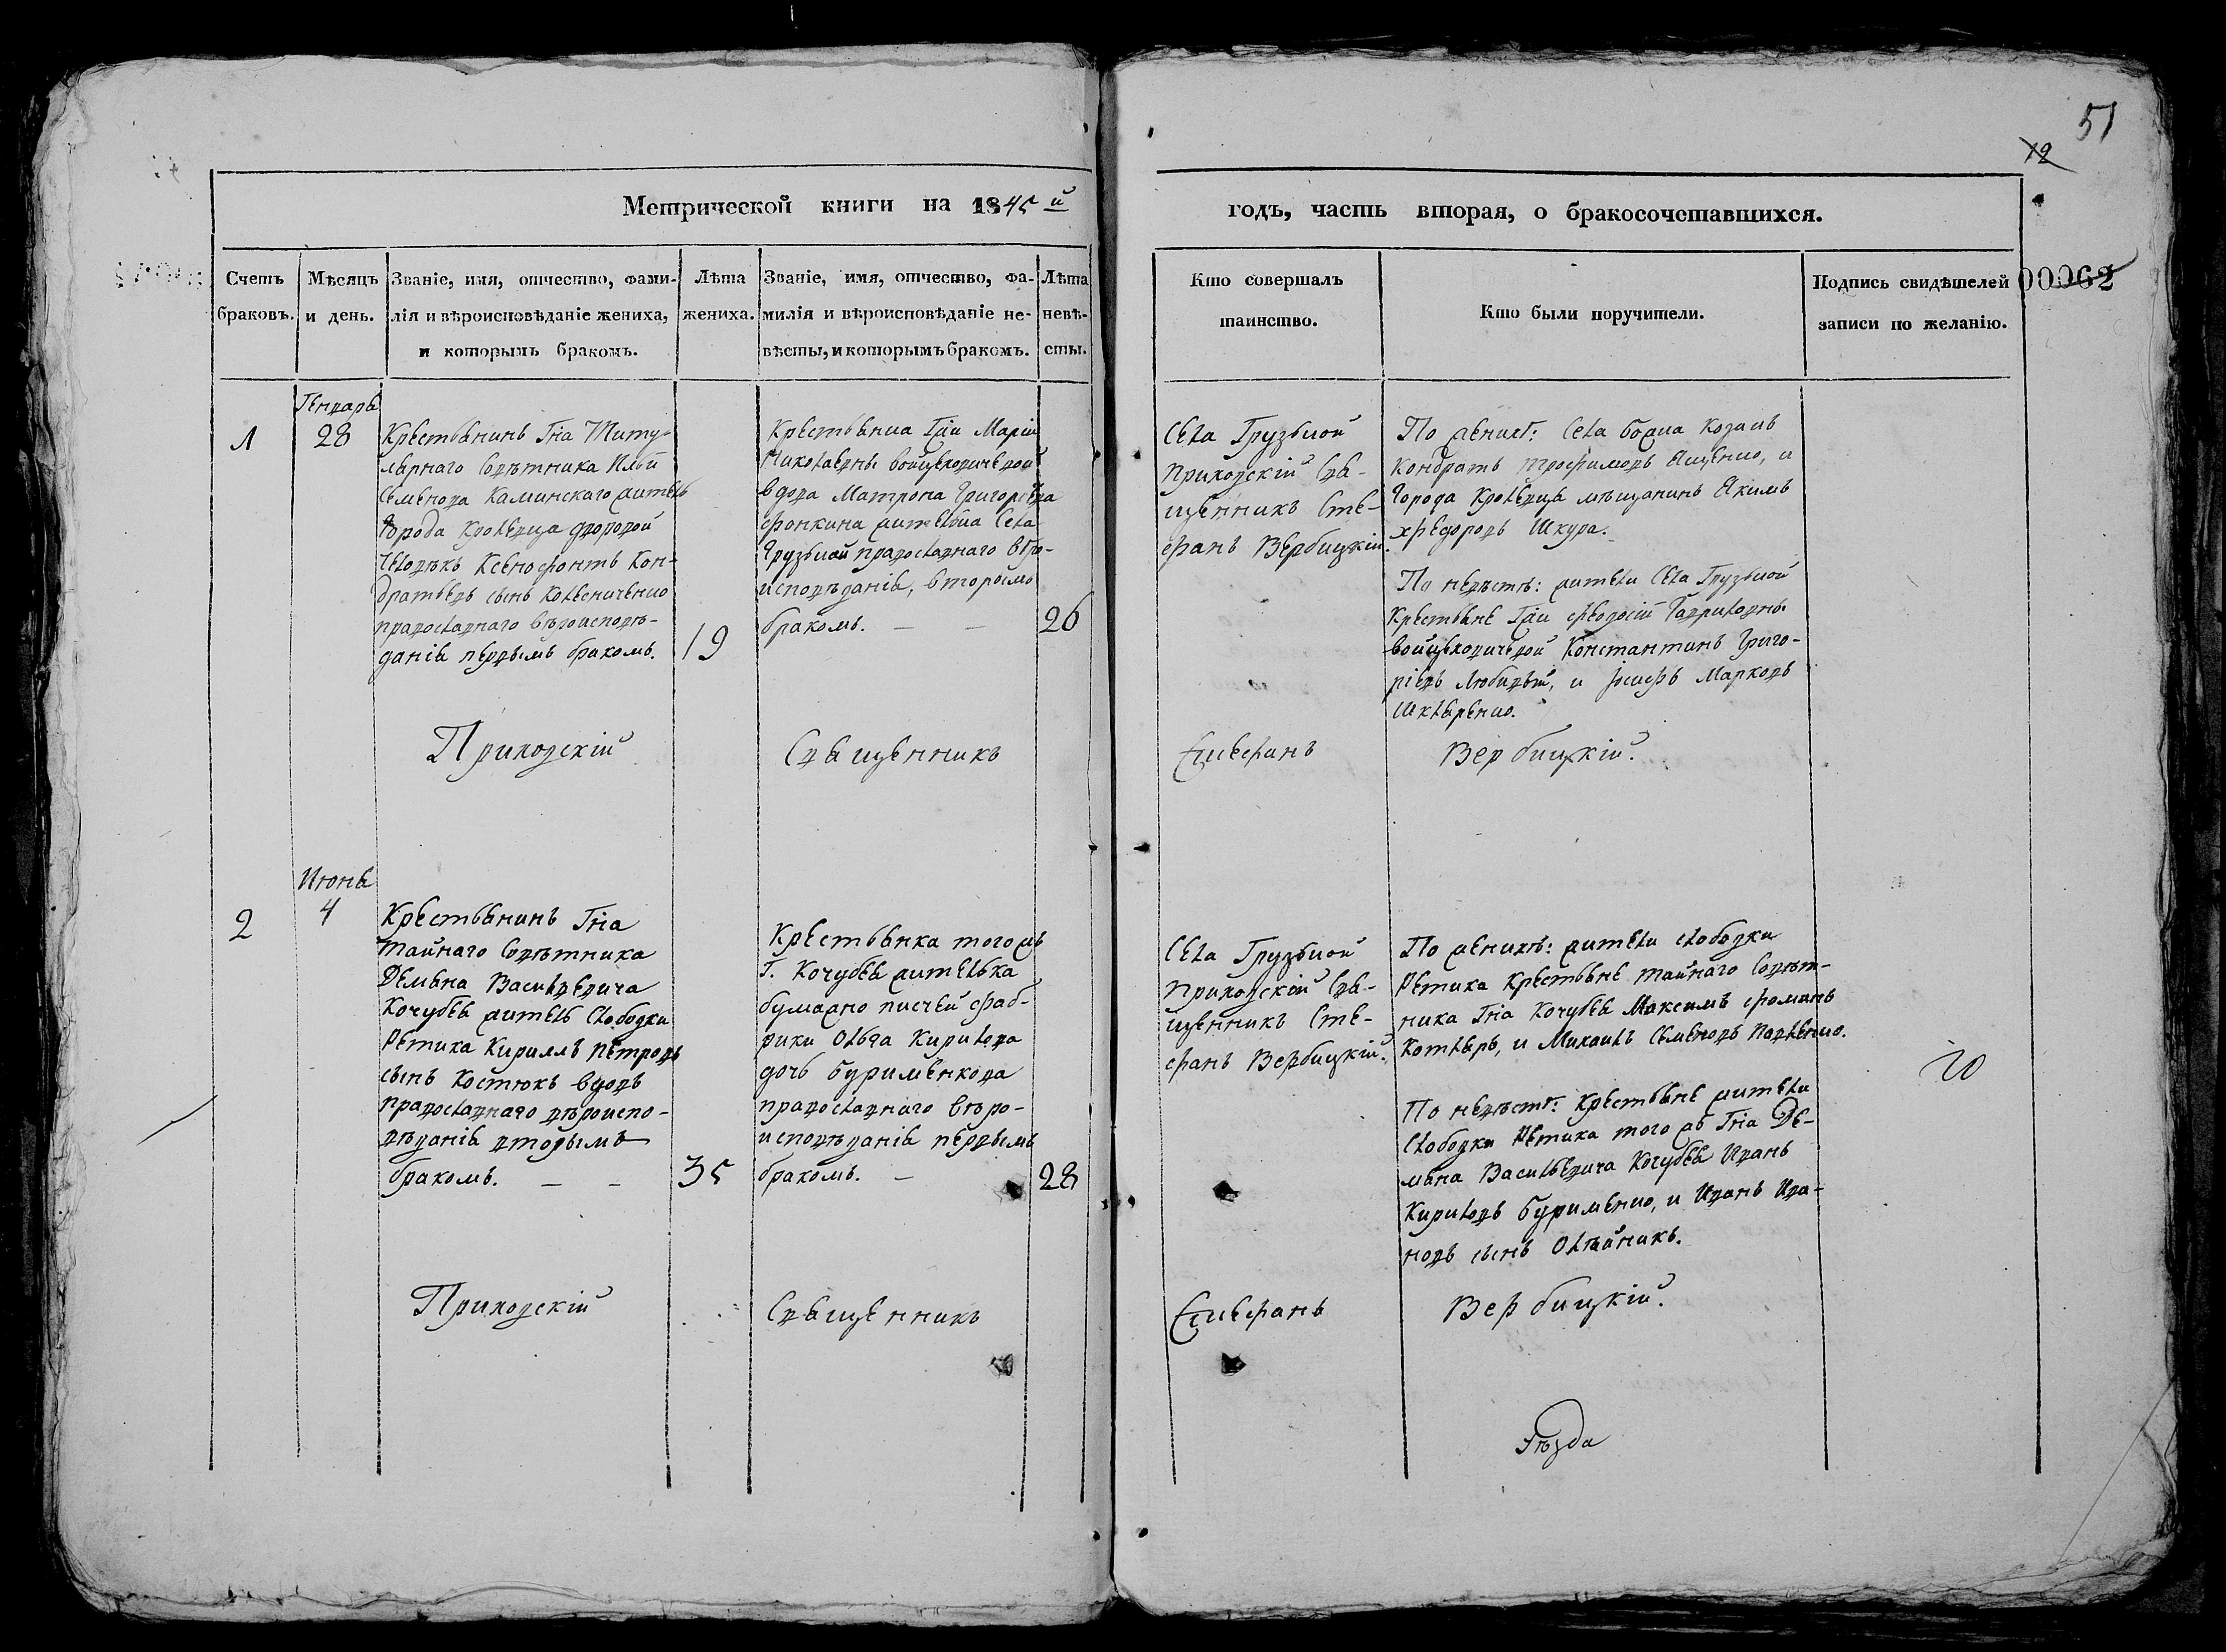 51
12
Метрической книги на 1845й
годъ, часть вторая, о бракосочетавшихся.
00062
Счетъ браковъ.
Мѣсяцъ и день.
Званіе, имя, отчество, фами-
лія и вѣроисповѣданіе жениха,
и которымъ бракомъ.
Лѣта жениха.
Званіе, имя, отчество, фа-
милія и вѣроисповѣданіе не-
вѣсты, и которымъ бракомъ.
Лѣта невѣ-
сты.
Кто совершалъ
таинство.
Кто были поручители.
Подпись свидѣтелей
записи по желанію.
1
Генваря
28
Крестьянинъ Гна Титу-
лярнаго Совѣтника Ильи
Семенова Каминскаго житель
Города Кролевца дворовой
человѣкъ Ксенофонтъ Кон-
дратьевъ сынъ Колесниченко
православнаго вѣроисповѣ-
данія первымъ бракомъ.
19
Крестьянка Гжи Маріи
Николаевны Войцеховичевой
вдова Матрона Григорьева
Фонкина жителька Села
Грузской православнаго вѣро-
исповѣданія, вторымъ
бракомъ.
26
Села Грузской
приходскій Свя-
щенникъ Сте-
фанъ Вербицкій.
По женихѣ: Села Божка Козакъ
Кондратъ Трофимовъ Ященко, и
Города Кролевца мѣщанинъ Якимъ
Ѳедоровъ Шкура.
По невѣстѣ: жители Села Грузской
Крестьяне Гжи Феодосіи Гавриловны
Войцеховичевой Константинъ Григо-
ріевъ Любивый, и Іосифъ Марковъ
Шкляренко.
Приходскій Священникъ Стефанъ Вербицкій.
2
Июня
4
Крестьянинъ Гна
Тайнаго Совѣтника
Демьяна Васильевича
Кочубея житель Слободки
Ретика Кириллъ Петровъ
сынъ Костюкъ вдовъ
православнаго вѣроиспо-
вѣданія вторымъ
бракомъ.
35
Крестьянка тогожъ
Г. Кочубея жителька
бумажно писчей фаб-
рики Ольга Кирилова
дочь Буримѣнкова
православнаго вѣро-
исповѣданія первымъ
бракомъ.
28
Села Грузской
приходской Свя-
щенникъ Сте-
фанъ Вербицкій.
По женихѣ: жители слободки
Ретика Крестьяне тайнаго Совѣт-
ника Гна Кочубея Максимъ Фоминъ
Котляръ, и Михаилъ Семеновъ Павленко.
По невѣстѣ: Крестьяне жители
Слободки Ретика того жъ Гна Де-
мьяна Васильевича Кочубея Иванъ
Кириловъ Бурименко, и Иванъ Ива-
новъ сынъ Олѣйникъ.
20
Приходскій Священникъ Стефанъ Вербицкій.